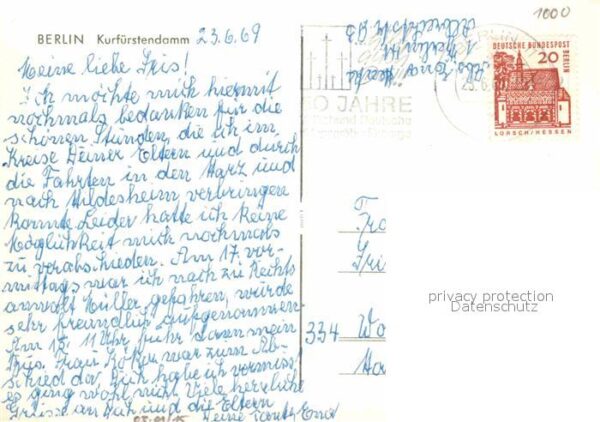 1000
BERLIN Kurfürstendamm 23.6.69
Meine liebe Iris!
Ich möchte mich hiermit
nochmals bedanken für die
schönen Stunden, die ich im
Kreise Deiner Eltern und durch
die Fahrten in den Harz und
nach Hildesheim verbringen
konnte. Leider hatte ich keine
Möglichkeit mich nochmals
zu verabschieden. Am 17. vor-
mittags war ich nach zu Rechts
anwalt Müller gefahren, wurde
sehr freundlich aufgenommen.
Am 18. 11 Uhr fuhr dann mein
Bus. Frau war zum Ab-
schied da, Dich habe ich vermisst
es ging wohl nicht. Viele herzliche
Grüsse an Dich und die Eltern
Deine Tante Erna
50 JAHRE
DEUTSCHE BUNDESPOST
BERLIN
20
LORSCH/HESSEN
Abs.
1 Berlin
privacy protection
Datenschutz
334 Wo